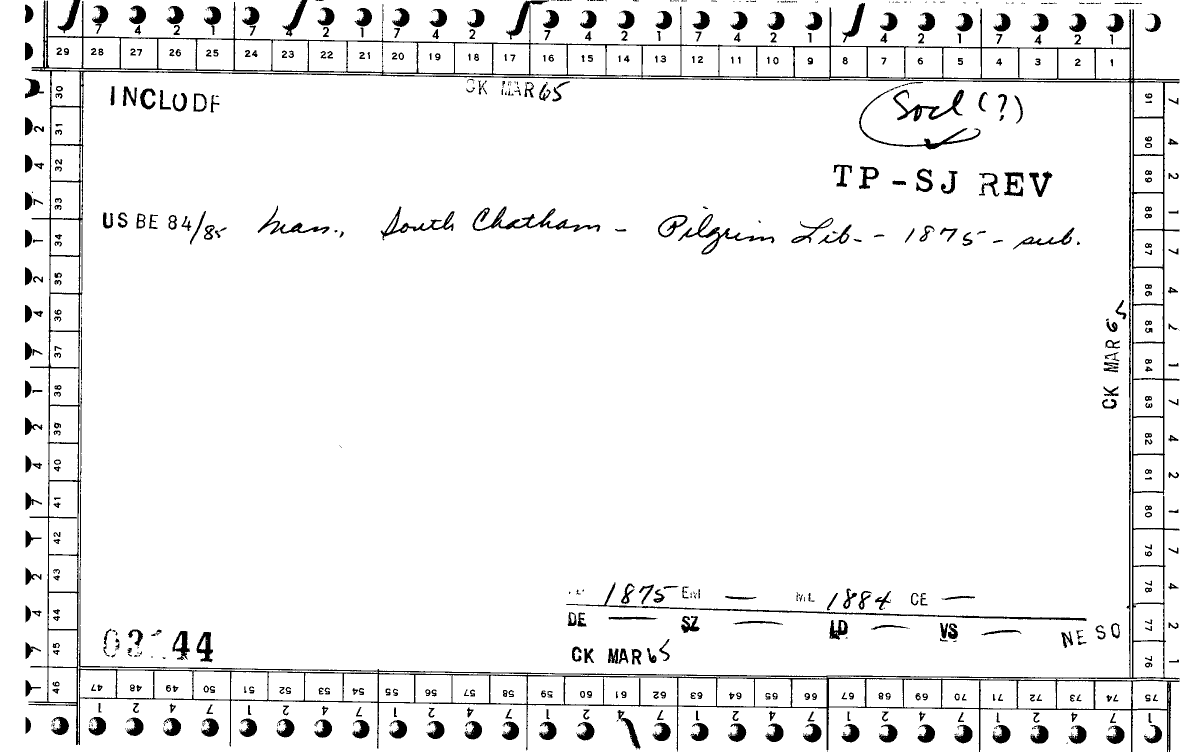 7 4 2 1 7 4 2 1 7 4 2 1 7 4 2 1 7 4 2 1 7 4 2 1 7 4 2 1
29 28 27 26 25 24 23 22 21 20 19 18 17 16 15 14 13 12 11 10 9 8 7 6 5 4 3 2 1
CK MAR 65
INCLUDE
Socl (?)
TP-SJ REV
US BE 84/85 Mass., South Chatham - Pilgrim Lib. - 1875 - sub.
CK MAR 65
1875 EM — ML 1884 CE —
DE — SZ — LD — VS — NE SO
03 44
CK MAR 65
30 31 32 33 34 35 36 37 38 39 40 41 42 43 44 45 46
2 4 7 1 2 4 7 1 2 4 7 1 2 4 7 1
91 90 89 88 87 86 85 84 83 82 81 80 79 78 77 76 75
7 4 2 1 7 4 2 1 7 4 2 1 7 4 2 1
47 48 49 50 51 52 53 54 55 56 57 58 59 60 61 62 63 64 65 66 67 68 69 70 71 72 73 74
1 2 4 7 1 2 4 7 1 2 4 7 1 2 4 7 1 2 4 7 1 2 4 7 1 2 4 7 1